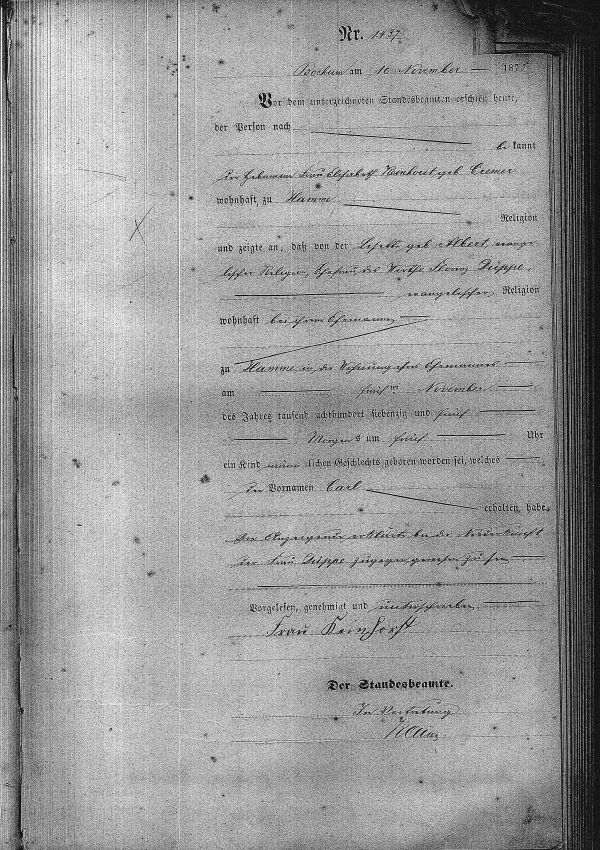 Nr. 1437
Bochum am 10 November 187
Vor dem unterzeichneten Standesbeamten erschien heute,
der Person nach
kannt
die Hebamme Frau Elisabeth geb Cremer
wohnhaft zu Hamme
Religion
und zeigte an, daß von der Lisette geb Albert, evange
lischer Religion, Ehefrau des Wirths Düppe,
evangelischer Religion
wohnhaft bei ihrem Ehemanne
zu Hamme in der Wohnung ihres Ehemannes
am November
des Jahres tausend achthundert siebenzig und fünf
Morgens um fünf Uhr
ein Kind männlichen Geschlechts geboren worden sei, welches
den Vornamen Carl
erhalten habe.
Die Anzeigende erklärte bei der Niederkunft
der Frau Düppe zugegen gewesen zu sein
Vorgelesen, genehmigt und unterschrieben
Frau
Der Standesbeamte.
In Vertretung